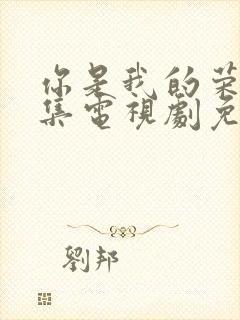 你是我的荣
集電視劇免
劉邦